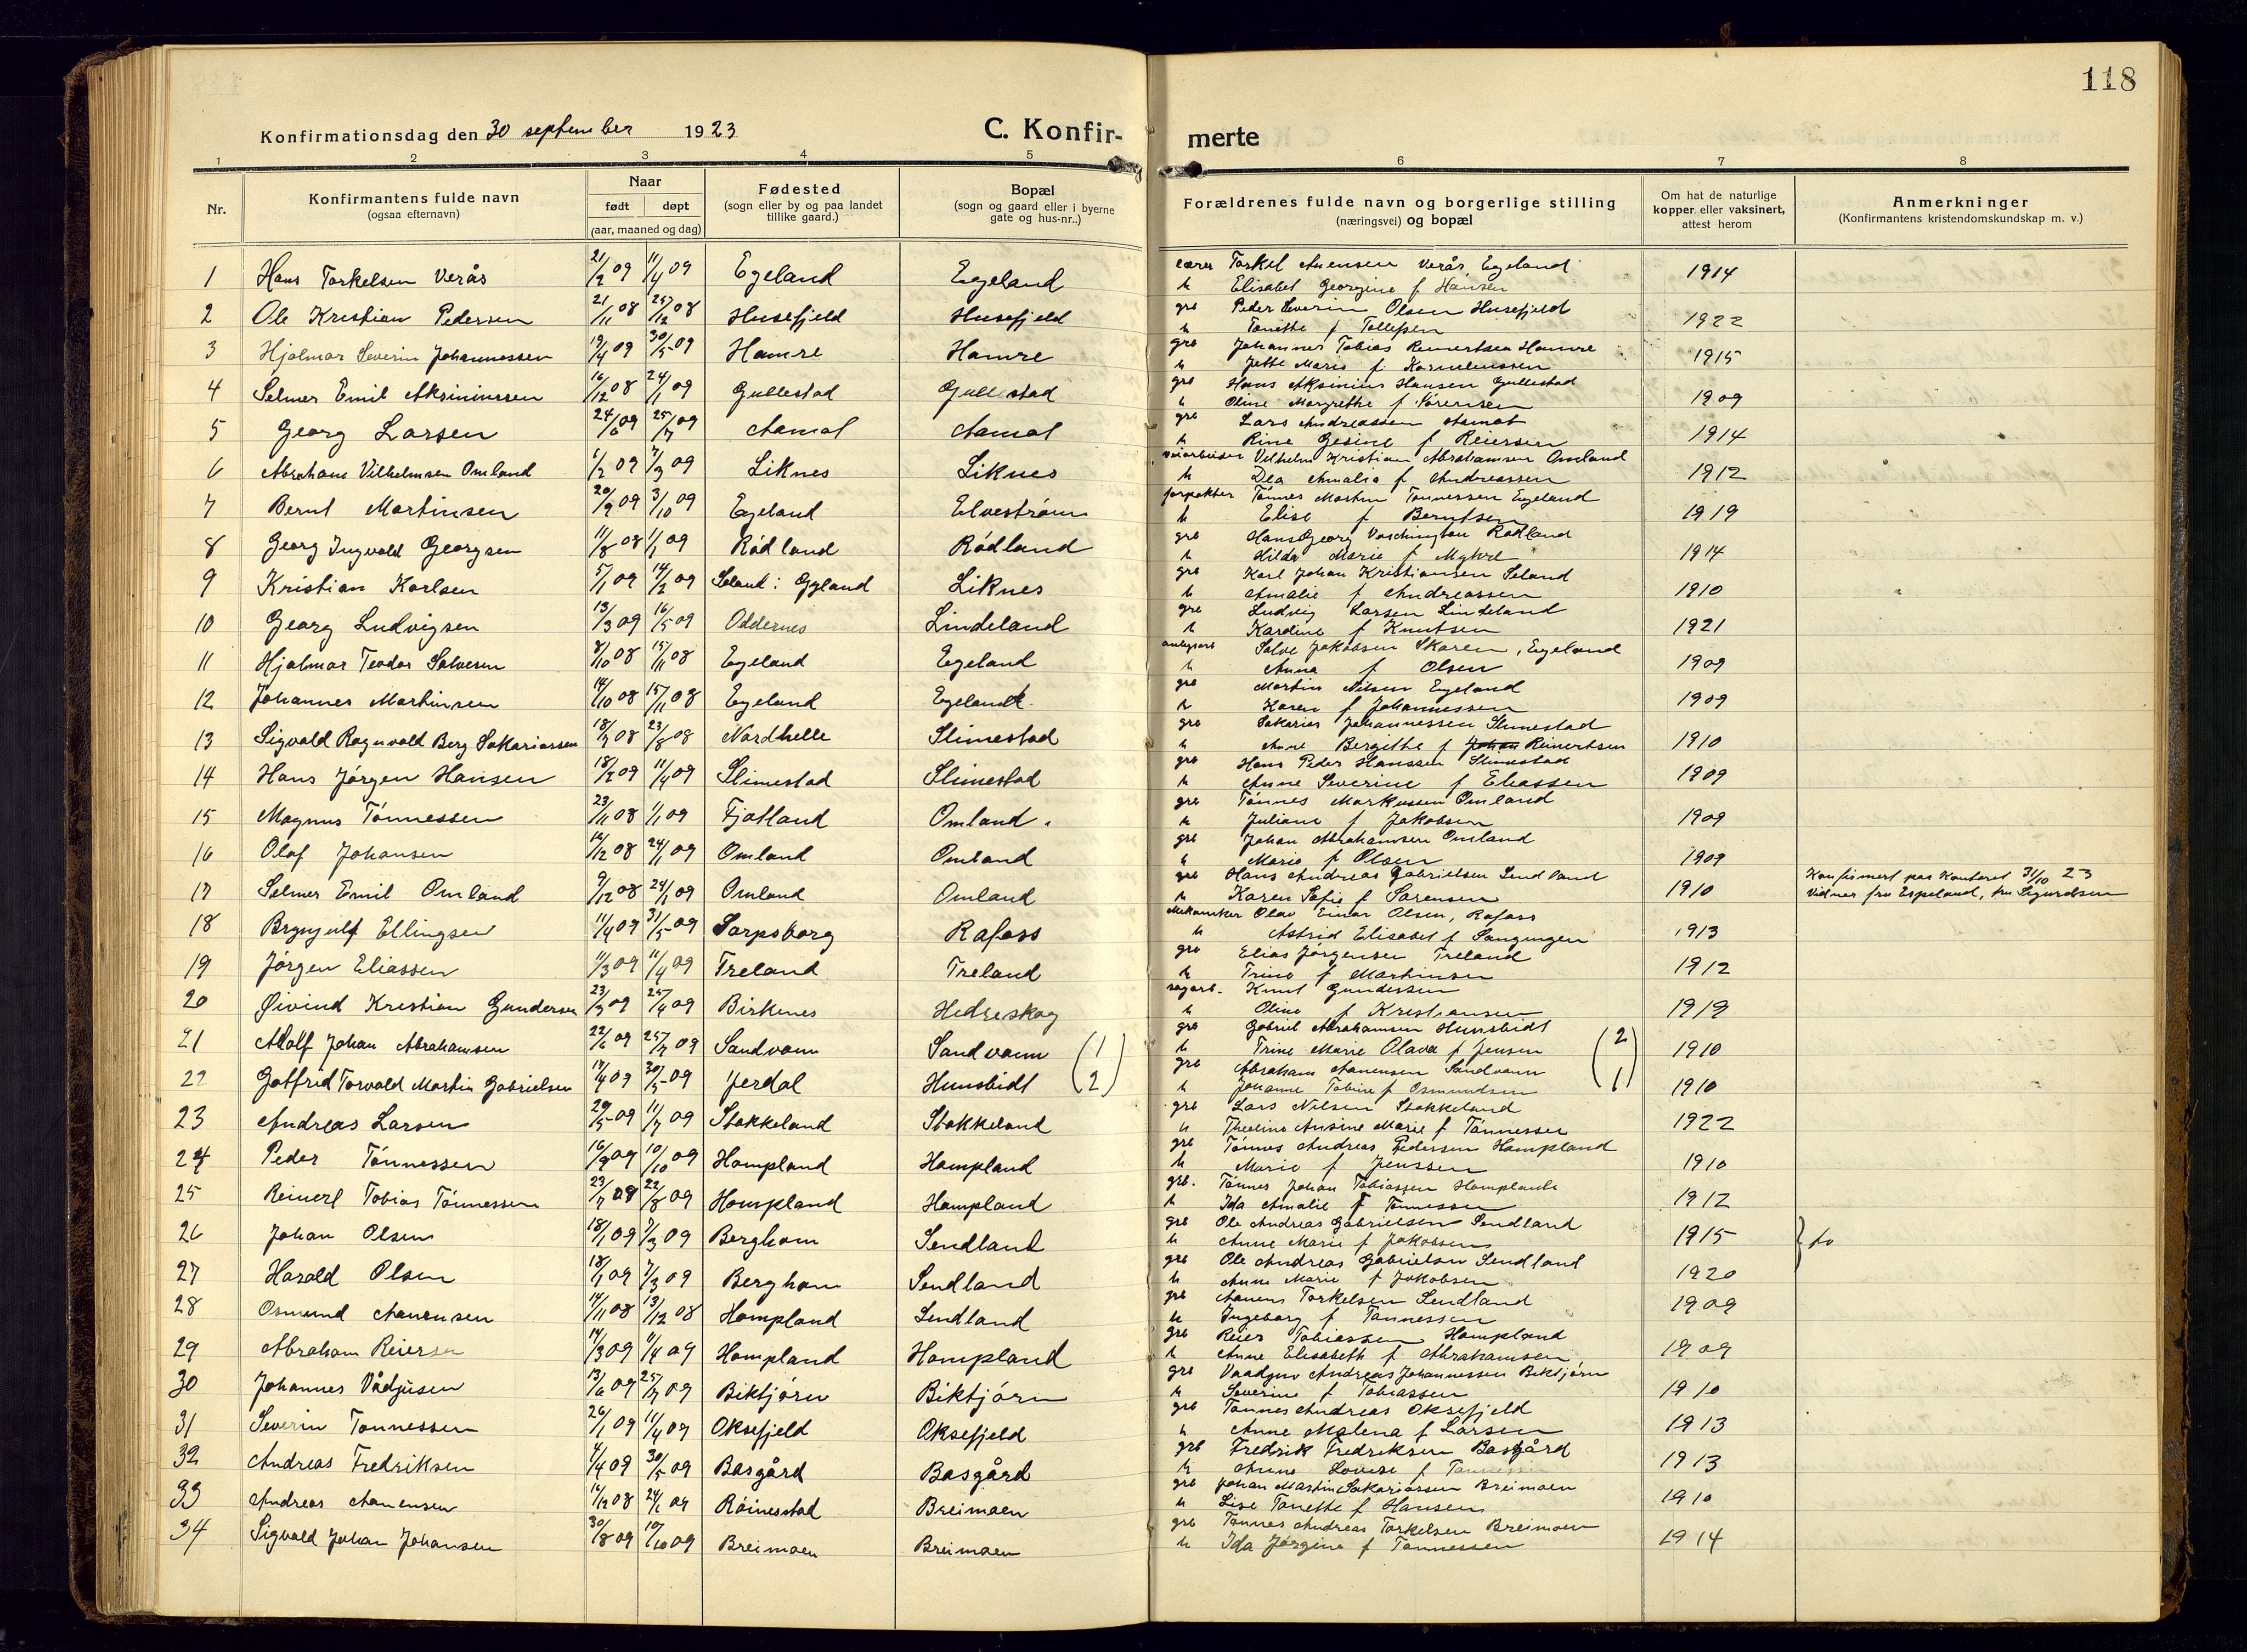 118
Konfirmationsdag den 30 september 1923
C. Konfir- merte
1 2 3 4 5 6 7 8
Nr.
Konfirmantens fulde navn
(ogsaa efternavn)
Naar
født døpt
(aar, maaned og dag)
Fødested
(sogn eller by og paa landet
tillike gaard.)
Bopæl
(sogn og gaard eller i byerne
gate og hus-nr..)
Forældrenes fulde navn og borgerlige stilling
(næringsvei) og bopæl
Om hat de naturlige
kopper eller vaksinert,
attest herom
Anmerkninger
(Konfirmantens kristendomskundskap m. v.)
1 Hans Torkelsen Verås 21/2 09 11/4 09 Egeland Egeland lærer Torkel Anensen Verås, Egeland 1914
h Elisabet Georgine f Hansen
2 Ole Kristian Pedersen 21/11 08 25/12 08 Husefjeld Husefjeld grb Peder Severin Olsen Husefjeld 1922
h Tonette f Tollefsen
3 Hjalmar Severin Johannessen 19/4 09 30/5 09 Hamre Hamre grb Johannes Tobias Reinertsen Hamre 1915
h Jette Marie f. Korneliussen
4 Selmer Emil Aksiniussen 16/12 08 24/1 09 Gullestad Gullestad grb Hans Aksinius Hansen Gullestad 1909
h Oline Margrethe f Sørensen
5 Georg Larsen 24/6 09 25/7 09 Aamot Aamot grb Lars Andreassen Aamot 1914
h Rine Gesine f Reiersen
6 Abraham Vilhelmsen Omland 1/2 09 7/3 09 Liknes Liknes veiarbeider Vilhelm Kristian Abrahamsen Omland 1912
h Dea Amalia f Andreassen
7 Bernt Martinsen 20/9 09 3/10 09 Egeland Elvestrøm forpakter Tønnes Martin Tønnessen Egeland 1919
h Elise f Berntsen
8 Georg Ingvald Georgsen 11/8 08 1/1 09 Rødland Rødland grb Hans Georg Vaschington Rødland 1914
h Hilda Marie f Myhre
9 Kristian Karlsen 5/1 09 14/2 09 Seland i Gyland Liknes grb Karl Johan Kristiansen Seland 1910
h Amalie f Andreassen
10 Georg Ludvigsen 13/3 09 16/5 09 Oddernes Lindeland grb Ludvig Larsen Lindeland 1921
h Kardine f Knutsen
11 Hjalmar Teodor Salvesen 8/10 08 15/11 08 Egeland Egeland Salve Jakobsen Skaren, Egeland 1909
h Anna f Olsen
12 Johannes Martinsen 14/10 08 15/11 08 Egeland Egeland grb Martin Nilsen Egeland 1909
h Karen f Johannessen
13 Sigvald Ragnvald Berg Sakariassen 18/7 08 23/8 08 Nordhelle Slimestad grb Sakarias Johannessen Slimestad 1910
h Anne Bergithe f Johan Reinertsen
14 Hans Jørgen Hansen 18/2 09 11/4 09 Slimestad Slimestad grb Hans Peder Hanssen Slimestad 1909
h Anne Severine f Eliassen
15 Magnus Tønnessen 23/11 08 1/1 09 Fjotland Omland. grb Tønnes Markussen Omland 1909
h Juliane f Jakobsen
16 Olaf Johansen 12/12 08 24/1 09 Omland Omland grb Johan Abrahamsen Omland 1909
h Marie f Olsen
17 Selmer Emil Omland 9/12 08 24/1 09 Omland Omland grb Hans Andreas Gabrielsen Sendland 1910 Konfirmert paa Kontoret 31/10 23
h Karen Sofie f Sørensen Vidner fru Espeland, fru Sigurdsen
18 Brynjulf Ellingsen 11/4 09 31/5 09 Sarpsborg Rafoss Mekaniker Olav Einar Olsen, Rafoss 1913
h Astrid Elisabet f
19 Jørgen Eliassen 11/3 09 11/4 09 Treland Treland grb Elias Jørgensen Treland 1912
h Trine f Martinsen
20 Øivind Kristian Gundersen 23/3 09 25/4 09 Birkenes Hedreskog sagarb. Knut Gundersen 1919
h Oline f Kristiansen
21 Adolf Johan Abrahamsen 22/6 09 25/7 09 Sandvann Sandvann (1) grb Gabriel Abrahamsen Hunsbidt (2) 1910
h Trine Marie Olava f Jensen
22 Gotfred Torvald Martin Gabrielsen 19/4 09 30/5 09 Jerdal Hunsbidt (2) grb Abraham Aanensen Sandvann (1) 1910
h Johanne Tobine f Osmundsen
23 Andreas Larsen 29/5 09 11/7 09 Stokkeland Stokkeland grb Lars Nilsen Stokkeland 1922
h Theoline Ansine Marie f Tønnessen
24 Peder Tønnessen 16/9 09 10/10 09 Hompland Hompland grb Tønnes Andreas Pedersen Hompland 1910
h Marie f Jenssen
25 Reinert Tobias Tønnessen 23/7 09 22/8 09 Hompland Hompland grb. Tønnes Johan Tobiassen Hompland 1912
h Ida Amalie f Tønnessen
26 Johan Olsen 18/1 09 7/3 09 Berghom Sendland grb Ole Andreas Gabrielsen Sendland 1915 } do
h Anne Marie f Jakobsen
27 Harald Olsen 18/1 09 7/3 09 Berghom Sendland grb Ole Andreas Gabrielsen Sendland 1920
h Anne Marie f Jakobsen
28 Osmund Aanensen 14/11 08 13/12 08 Hompland Sendland grb Aanen Torkelsen Sendland 1909
h Ingeborg f Tønnessen
29 Abraham Reiersen 14/3 09 11/4 09 Hompland Hompland grb Reier Tobiassen Hompland 1909
h Anne Elisabeth f Abrahamsen
30 Johannes Vådjusen 13/6 09 25/7 09 Biktjørn Biktjørn grb Vaadguv Andreas Johannessen Biktjørn 1910
h Severine f Tobiassen
31 Severin Tønnessen 26/1 09 11/4 09 Oksefjeld Oksefjeld grb Tønnes Andreas Oksefjeld 1913
h Anne Malena f Larsen
32 Andreas Fredriksen 4/4 09 30/5 09 Basgård Basgård grb Fredrik Fredriksen Basgård 1913
h Anne Lovise f
33 Andreas Aanensen 12/12 08 24/1 09 Röinestad Breimoen grb Johan Martin Sakariassen Breimoen 1910
h Lise Tonette f Hansen
34 Sigvald Johan Johansen 30/8 09 10/10 09 Breimoen Breimoen grb Tønnes Andreas Torkelsen Breimoen 1914
h Ida Jørgine f Tønnessen